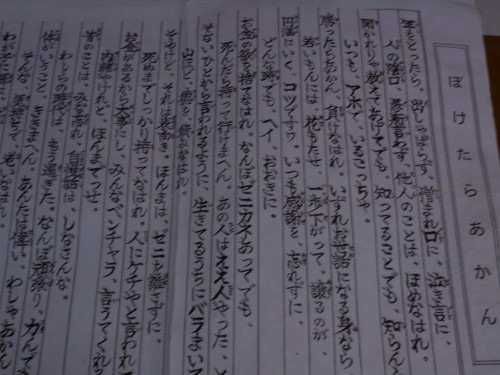 ぼけたらあかん
年をとったら、出しゃばらず、憎まれ口に、泣き言に、
人の陰口、愚痴言わず、他人のことは、ほめなはれ。
聞かれりゃ教えてあげてでも、知ってることでも、知らん
いつも、アホで、いるこっちゃ。
勝ったらあかん、負けなはれ。いずれお世話になる身なら
若いもんには、花もたせ、一歩下がって、譲るのが
円満にいく、コツですわ。いつも感謝を、忘れずに
どんな時でも、ヘイ、おおきに。
お金の欲を、捨てなはれ。なんぼゼニカネあってでも、
死んだら持って行けまへん。あの人はええ人やった、
そないひとから言われるように、生きてるうちにバラまいて
山ほど、徳を、積みなはれ。
そやけど、それは表向き。ほんまは、ゼニを離さずに。
死ぬまでしっかり持ってなはれ。人にケチやと言われて
お金があるから大事にし、みんなベンチャラ、言うてくれる
内緒やけれど、ほんまでっせ。
昔のことは、みな忘れ、自慢話は、しなさんな。
わしらの時代は、もう過ぎた。なんぼ頑張り、力んで
体がいうこと、ききまへん。あんたは偉い、わしゃあかん
そんな、気持で、老いなはれ。